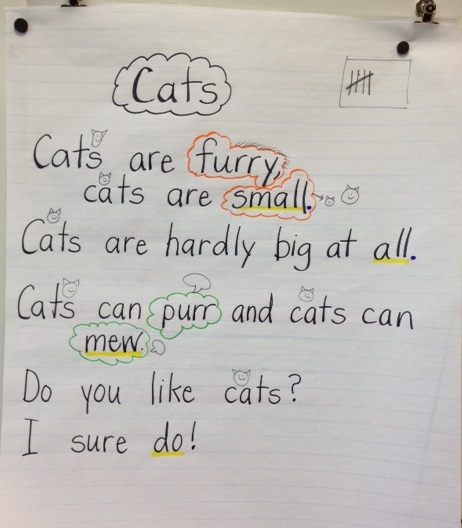 Cats
Cats are furry,
cats are small.
Cats are hardly big at all.
Cats can purr and cats can
mew.
Do you like cats?
I sure do!